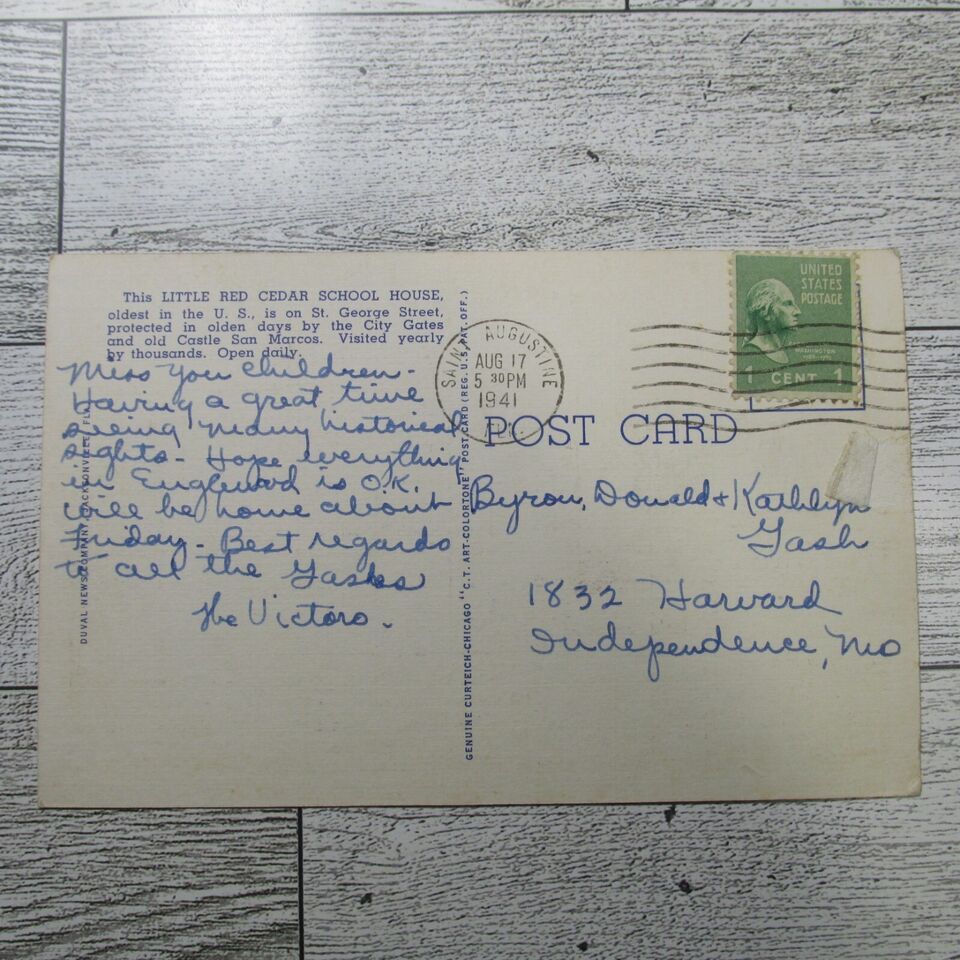 This LITTLE RED CEDAR SCHOOL HOUSE,
oldest in the U. S., is on St. George Street,
protected in olden days by the City Gates
and old Castle San Marcos. Visited yearly
by thousands. Open daily.
Miss you children -
Having a great time
seeing many historical
sights - Hope everything
in Englewood is O.K.
will be home about
Friday - Best regards
to all the Gashes
The Victors.
DUVAL NEWS COMPANY, JACKSONVILLE, FLA.
GENUINE CURTEICH-CHICAGO "C.T. ART-COLORTONE" POST CARD (REG. U.S. PAT. OFF.)
SAINT AUGUSTINE
AUG 17
5 30 PM
1941
UNITED
STATES
POSTAGE
WASHINGTON
1 CENT 1
POST CARD
Byron, Donald & Kathlyn
Gash
1832 Harvard
Independence, Mo